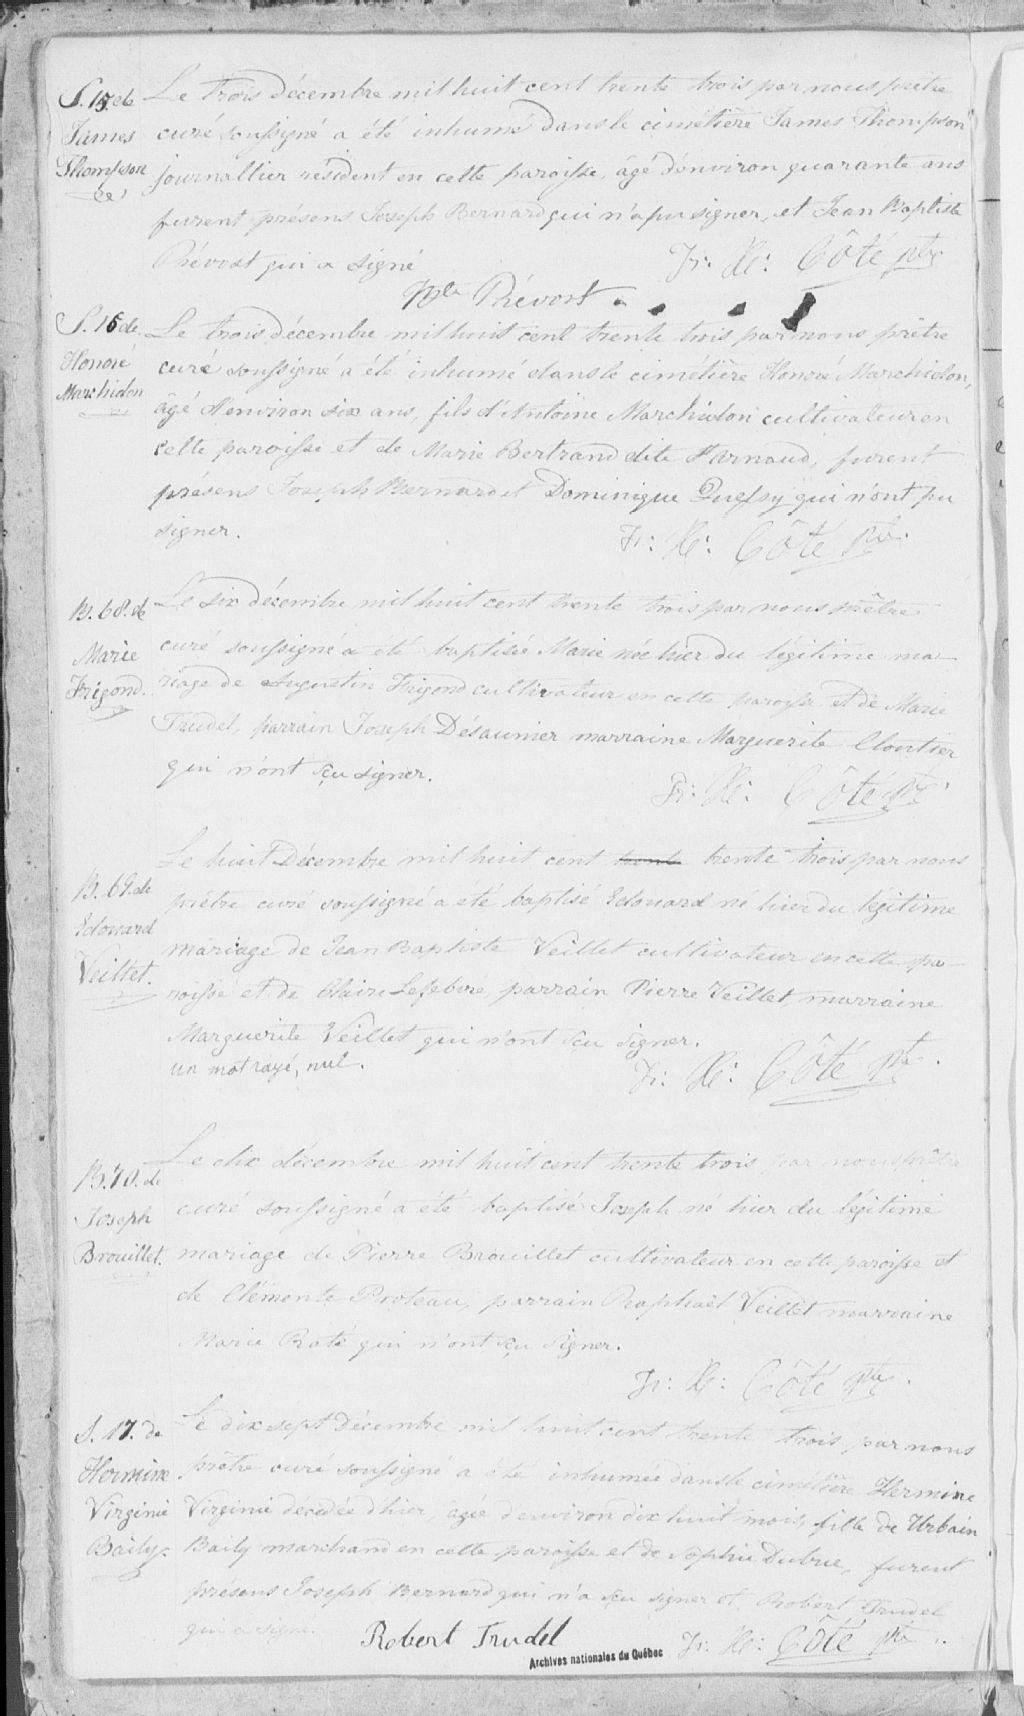 S. 15. de
James
Thompson
Le trois décembre mil huit cent trente trois par nous prêtre
curé soussigné a été inhumé dans le cimétière James Thompson
journallier résident en cette paroisse, âgé d'environ quarante ans
furent présens Joseph Bernard qui n'a pu signer, et Jean Baptiste
Prévost qui a signé
Fr: X: Côté ptre
Prévost
S. 16 de
Honoré
Marchidon
Le trois décembre mil huit cent trente trois par nous prêtre
curé soussigné a été inhumé dans le cimétière Honoré Marchidon,
âgé d'environ six ans, fils d'Antoine Marchidon cultivateur en
cette paroisse et de Marie Bertrand dite St Arnaud, furent
présens Joseph Bernard et Dominique Quessy qui n'ont pu
signer.
Fr: X: Côté ptre.
B. 68. de
Marie
Frigond.
Le six décembre mil huit cent trente trois par nous prêtre
curé soussigné a été baptisée Marie née hier du légitime ma-
riage de Augustin Frigond cultivateur en cette paroisse et de Marie
Trudel, parrain Joseph Désaunier marraine Marguerite Cloutier
qui n'ont sçu signer.
Fr: X: Côté ptre.
B. 69. de
Edouard
Veillet.
Le huit Décembre mil huit cent trente trente trois par nous
prêtre curé soussigné a été baptisé Edouard né hier du légitime
mariage de Jean Baptiste Veillet cultivateur en cette pa-
roisse et de Claire Lefebvre, parrain Pierre Veillet, marraine
Marguerite Veillet qui n'ont sçu signer.
un mot rayé, nul.
Fr: X: Côté ptre.
B. 70. de
Joseph
Brouillet.
Le dix décembre mil huit cent trente trois par nous prêtre
curé soussigné a été baptisé Joseph né hier du légitime
mariage de Pierre Brouillet cultivateur en cette paroisse et
de Clémente Proteau, parrain Raphaël Veillet marraine
Marie Raté qui n'ont sçu signer.
Fr: X: Côté ptre.
S. 17. de
Hermine
Virginie
Baily.
Le dix sept Décembre mil huit cent trente trois par nous
prêtre curé soussigné a été inhumée dans le cimetière Hermine
Virginie décédée d'hier, agée d'environ dix huit mois, fille de Urbain
Baily marchand en cette paroisse et de Sophie Dubuc, furent
présens Joseph Bernard qui n'a sçu signer et Robert Trudel
qui a signé.
Robert Trudel
Fr: X: Côté ptre
Archives nationales du Québec